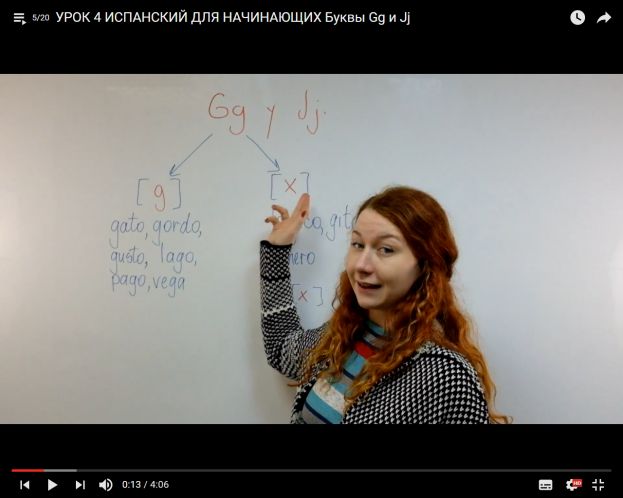 5/20 УРОК 4 ИСПАНСКИЙ ДЛЯ НАЧИНАЮЩИХ Буквы Gg и Jj
Gg y Jj.
[g] [x]
gato, gordo,
gusto, lago,
pago, vega
[x]
0:13 / 4:06
HD